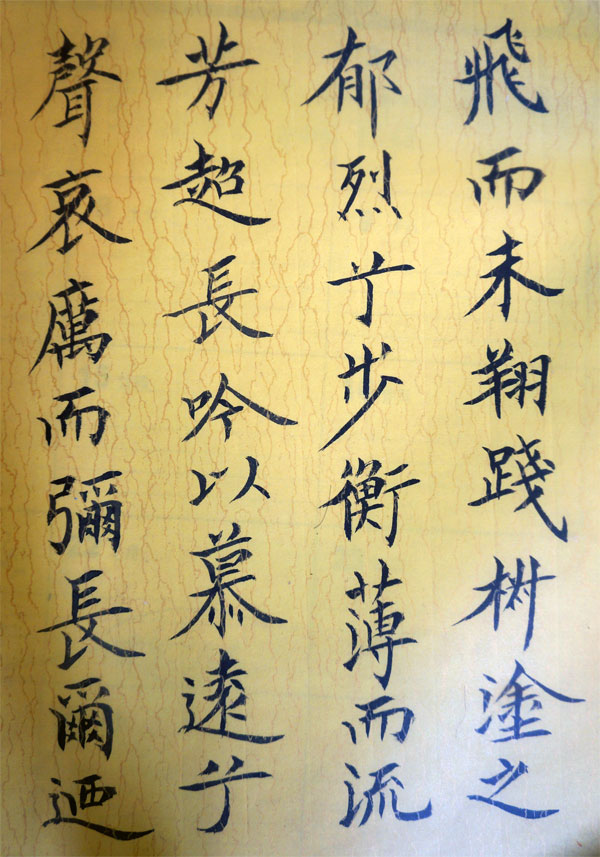 飛而未翔踐椒塗之
郁烈兮步衡薄而流
芳超長吟以慕遠兮
聲哀厲而彌長爾迺